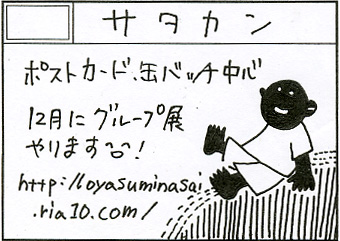 サタカン
ポストカード、缶バッチ中心
12月にグループ展
やります~~!
http://oyasuminasai
.ria10.com/